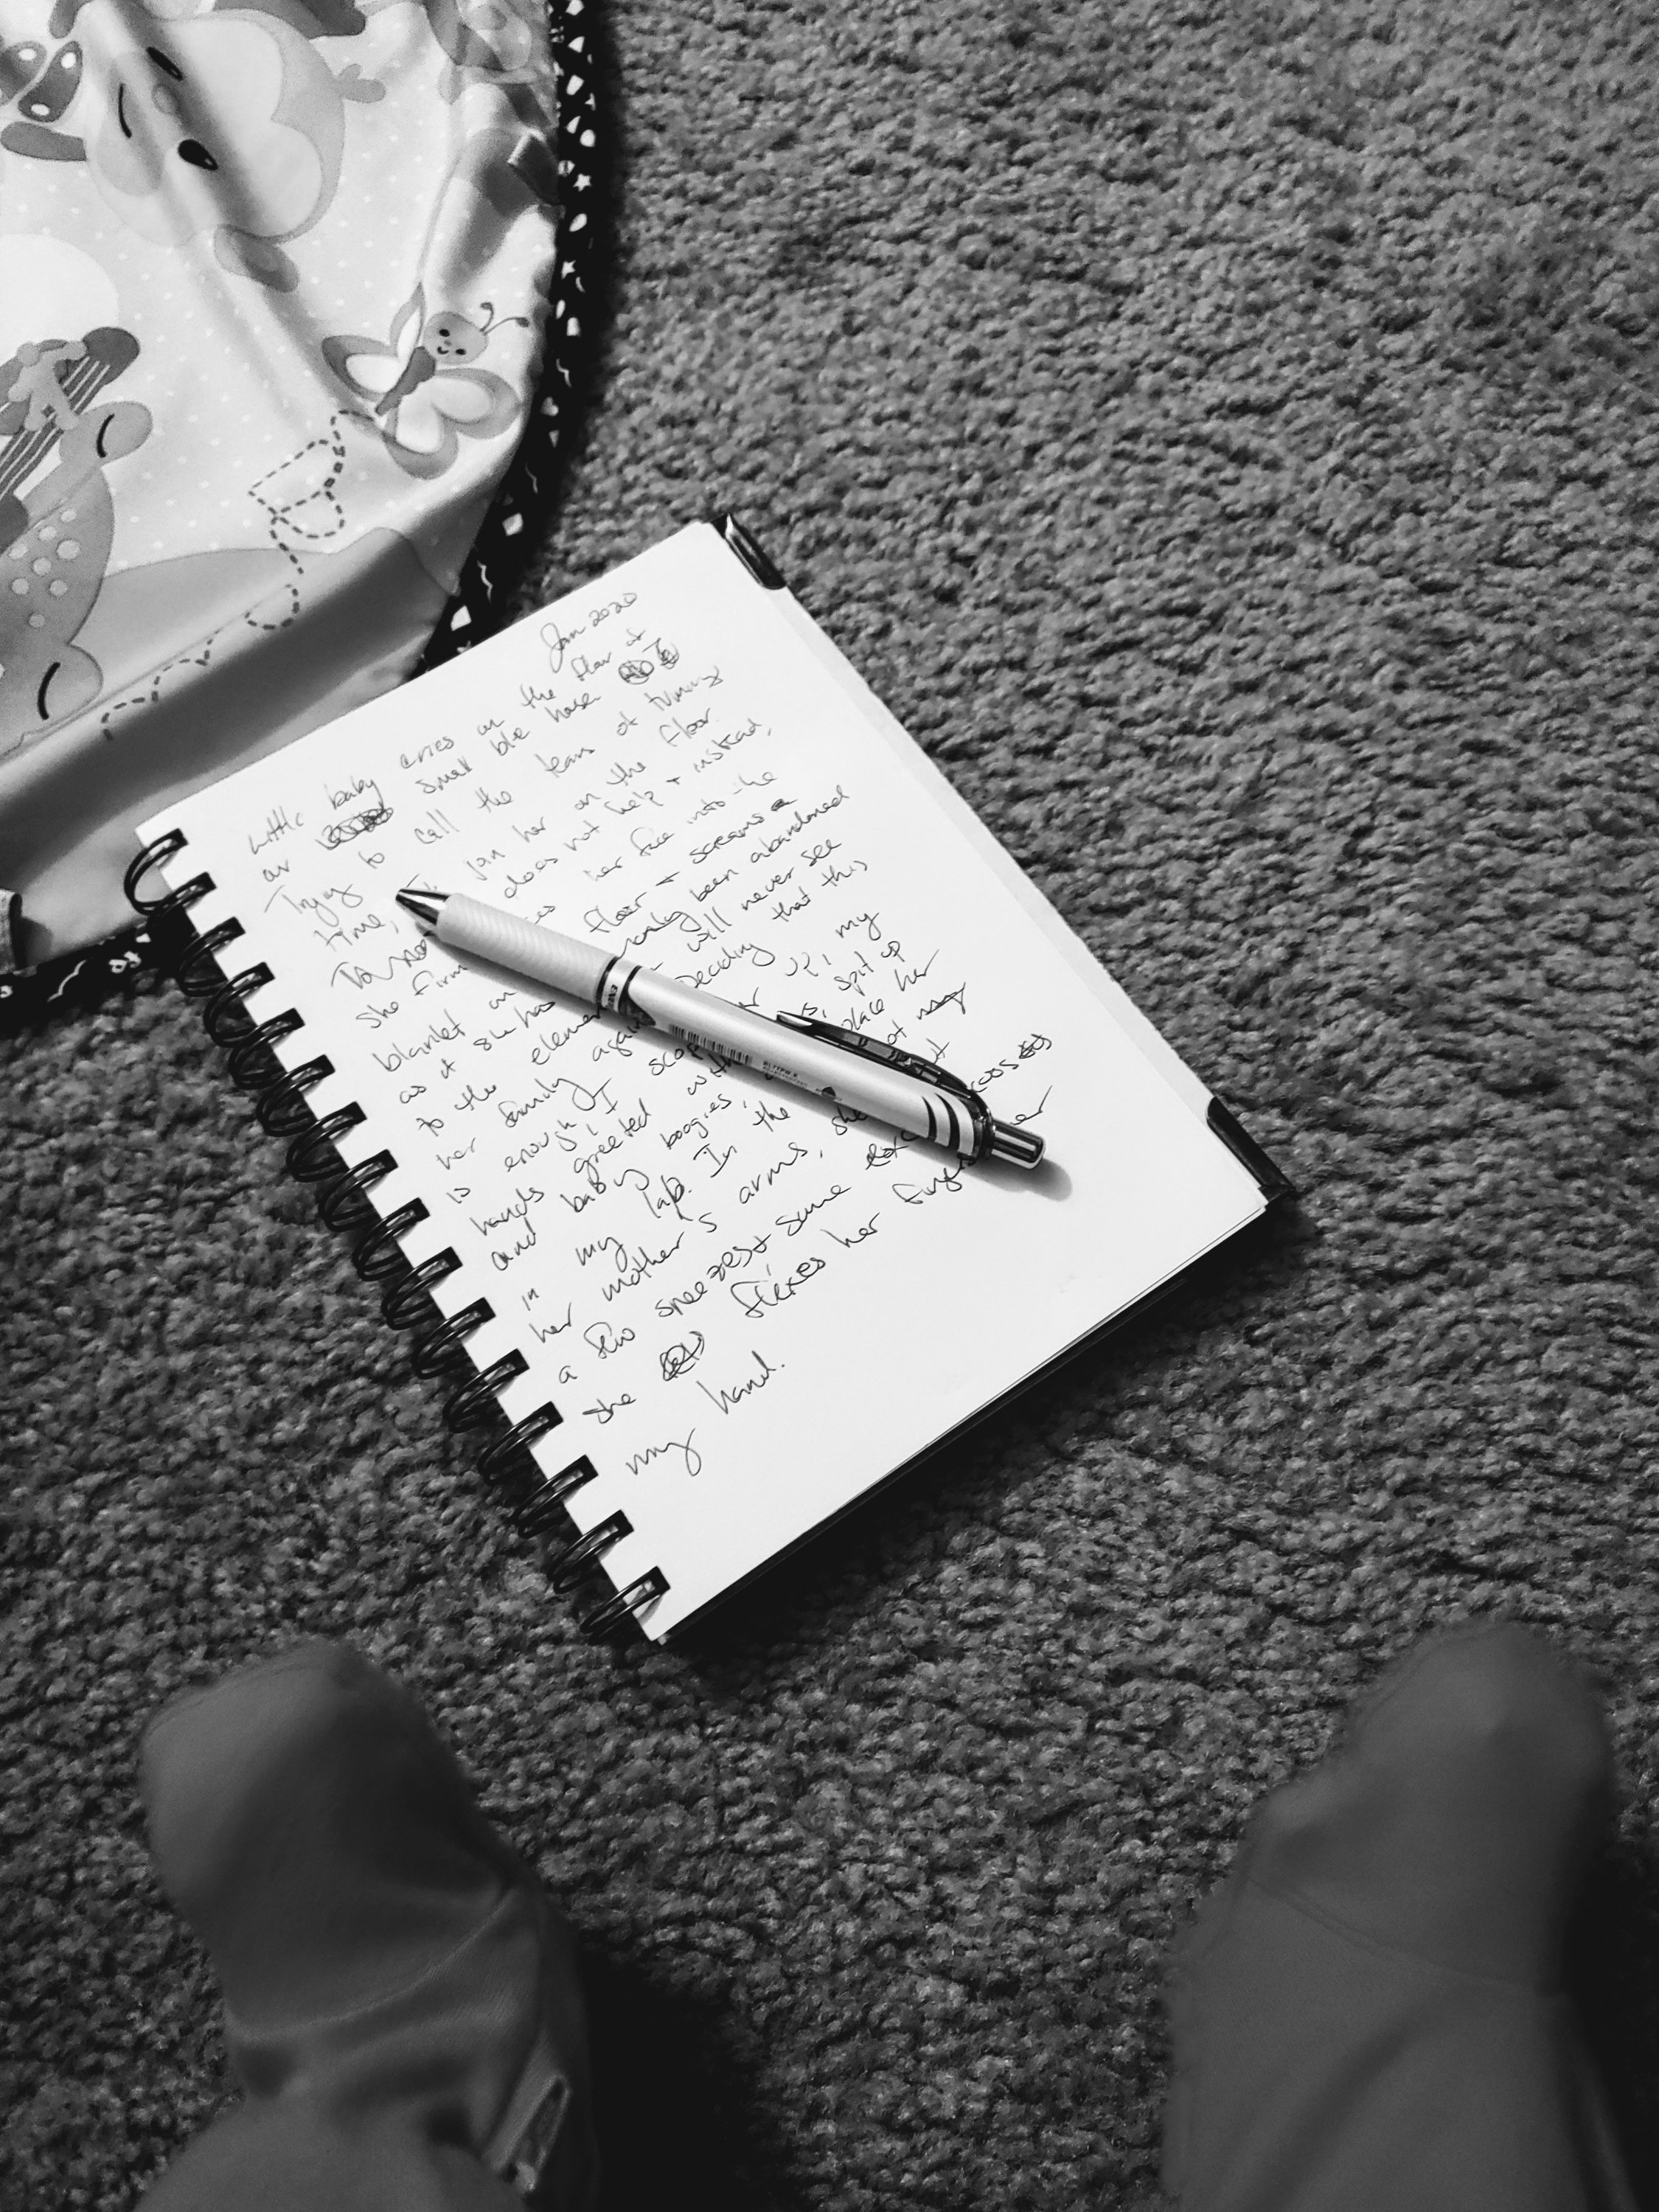 Jan 2020
Little baby cries on the floor at
our small blue house
Trying to call the team of tummy
time, I join her on the floor.
does not help & instead,
She firm her face into the
blanket on floor & screams
as if she has been abandoned
to the elemen will never see
her family again Deciding that this
is enough, I scoop her up, my
hands greeted with s, spit up
and baby boogies, place her
in my lap. In the not
her mother's arms, she
a few sneezes & some
she flexes her finge her
my hand.
ENERGEL